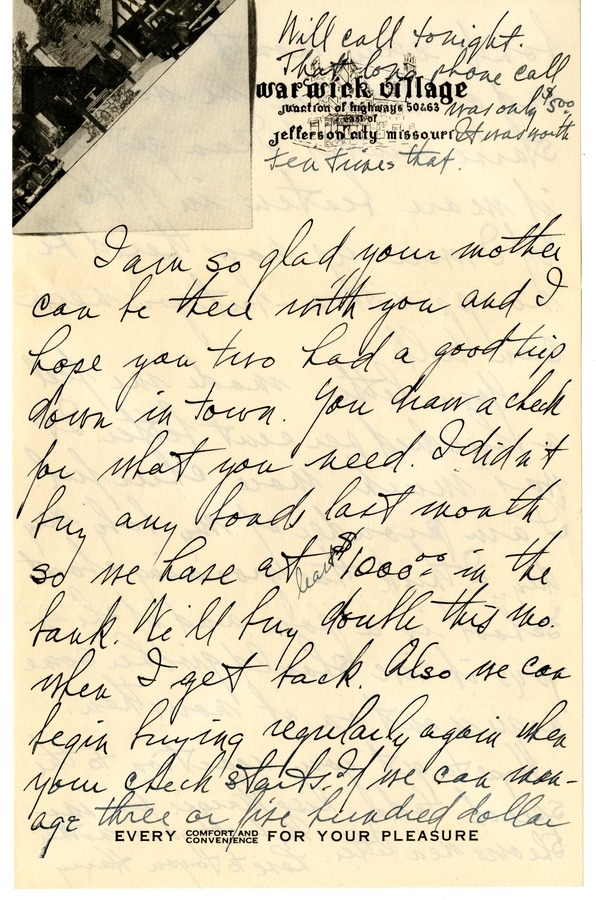 Will call tonight.
That long phone call
was only $5.00.
It was worth
ten times that.
warwick village
junction of highways 50 & 63
east of
jefferson city missouri
I am so glad your mother
can be there with you and I
hope you two had a good trip
down in town. You draw a check
for what you need. I didn't
buy any bonds last month
so we have at least $1000.00 in the
bank. We'll buy double this mo.
when I get back. Also we can
begin buying regularly again when
your check starts. If we can man-
age three or five hundred dollar
EVERY COMFORT AND CONVENIENCE FOR YOUR PLEASURE